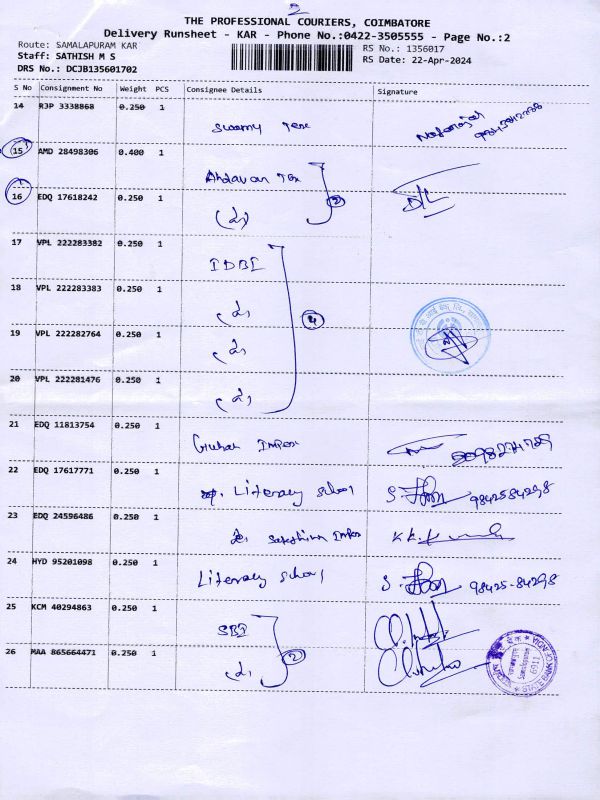 2
THE PROFESSIONAL COURIERS, COIMBATORE
Delivery Runsheet - KAR - Phone No.:0422-3505555 - Page No.:2
Route: SAMALAPURAM KAR
RS No.: 1356017
Staff: SATHISH M S
RS Date: 22-Apr-2024
DRS No.: DCJB135601702
S No Consignment No Weight PCS Consignee Details Signature
14 RJP 3338868 0.250 1
15 AMD 28498306 0.400 1
16 EDQ 17618242 0.250 1 2
17 VPL 222283382 0.250 1 IDBI
18 VPL 222283383 0.250 1 4
19 VPL 222282764 0.250 1
20 VPL 222281476 0.250 1
21 EDQ 11813754 0.250 1 Impex
22 EDQ 17617771 0.250 1 Literacy school 98425 84298
23 EDQ 24596486 0.250 1 Impex
24 HYD 95201098 0.250 1 Literacy school 98425-84298
25 KCM 40294863 0.250 1 SBI
26 MAA 865664471 0.250 1 2
STATE BANK OF INDIA